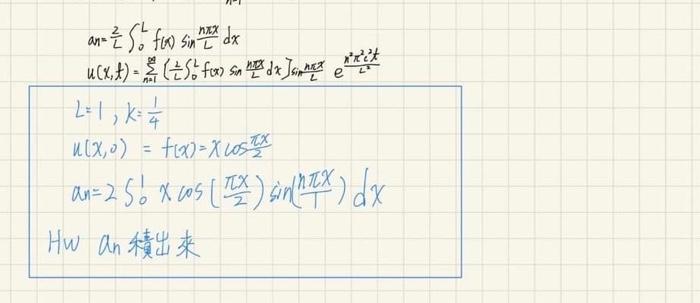 n=1
an = \frac{2}{L} \int_0^L f(x) \sin \frac{n\pi x}{L} dx
u(x,t) = \sum_{n=1}^{\infty} [ \frac{2}{L} \int_0^L f(x) \sin \frac{n\pi x}{L} dx ] \sin \frac{n\pi x}{L} e^{\frac{n^2\pi^2 c^2 t}{L^2}}
L=1, k=\frac{1}{4}
u(x,0) = f(x) = x \cos \frac{\pi x}{2}
an = 2 \int_0^1 x \cos (\frac{\pi x}{2}) \sin(\frac{n\pi x}{1}) dx
HW an 積出來